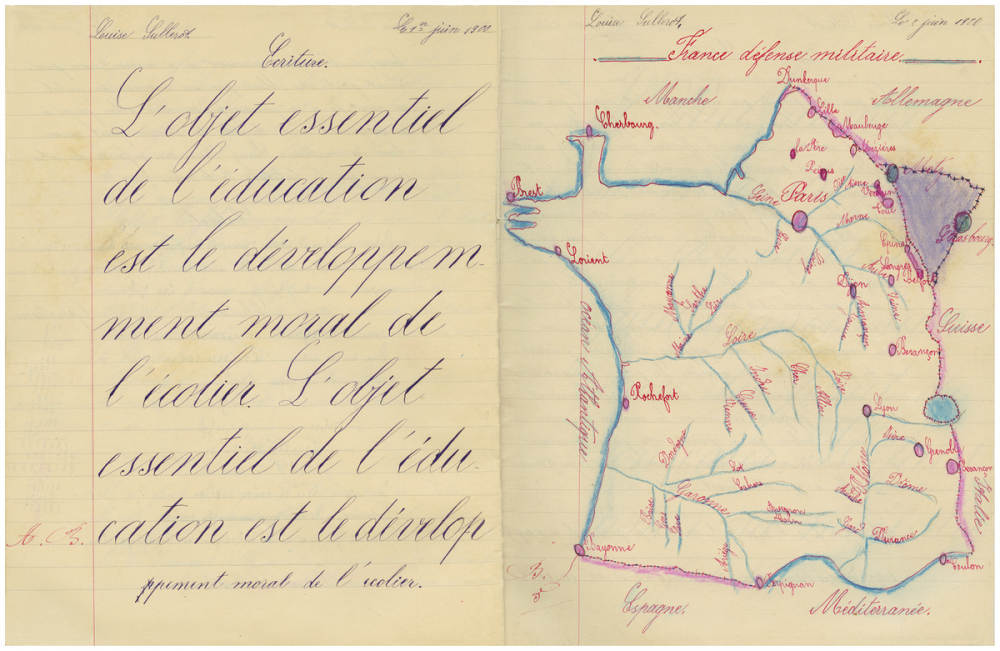 Louise Sullerot.
Le 1er juin 1900
Ecriture.
L'objet essentiel
de l'éducation
est le développem-
ment moral de
l'écolier. L'objet
essentiel de l'édu-
cation est le dévelop
ppement moral de l'écolier.
Louise Sullerot.
Le 2 juin 1900
France défense militaire.
Dunkerque
Manche
Allemagne
Lille
Cherbourg.
Maubeuge
la Fère
Mézières
Reims
Metz
Brest
Seine
Paris
Aisne
Verdun
Toul
Marne
Strasbourg
Epinal
Lorient
Langres
Belfort
Dijon
Mayenne
Sarthe
Loir
Maine
Suisse
océan Atlantique
Loire
Besançon
Indre
Cher
Allier
Rochefort
Vienne
Creuse
Lyon
Isère
Grenoble
Besançon
Dordogne
Lot
Garonne
Drôme
Italie
Durance
Ariège
Bayonne
Perpignan
Toulon
Espagne.
Méditerranée.